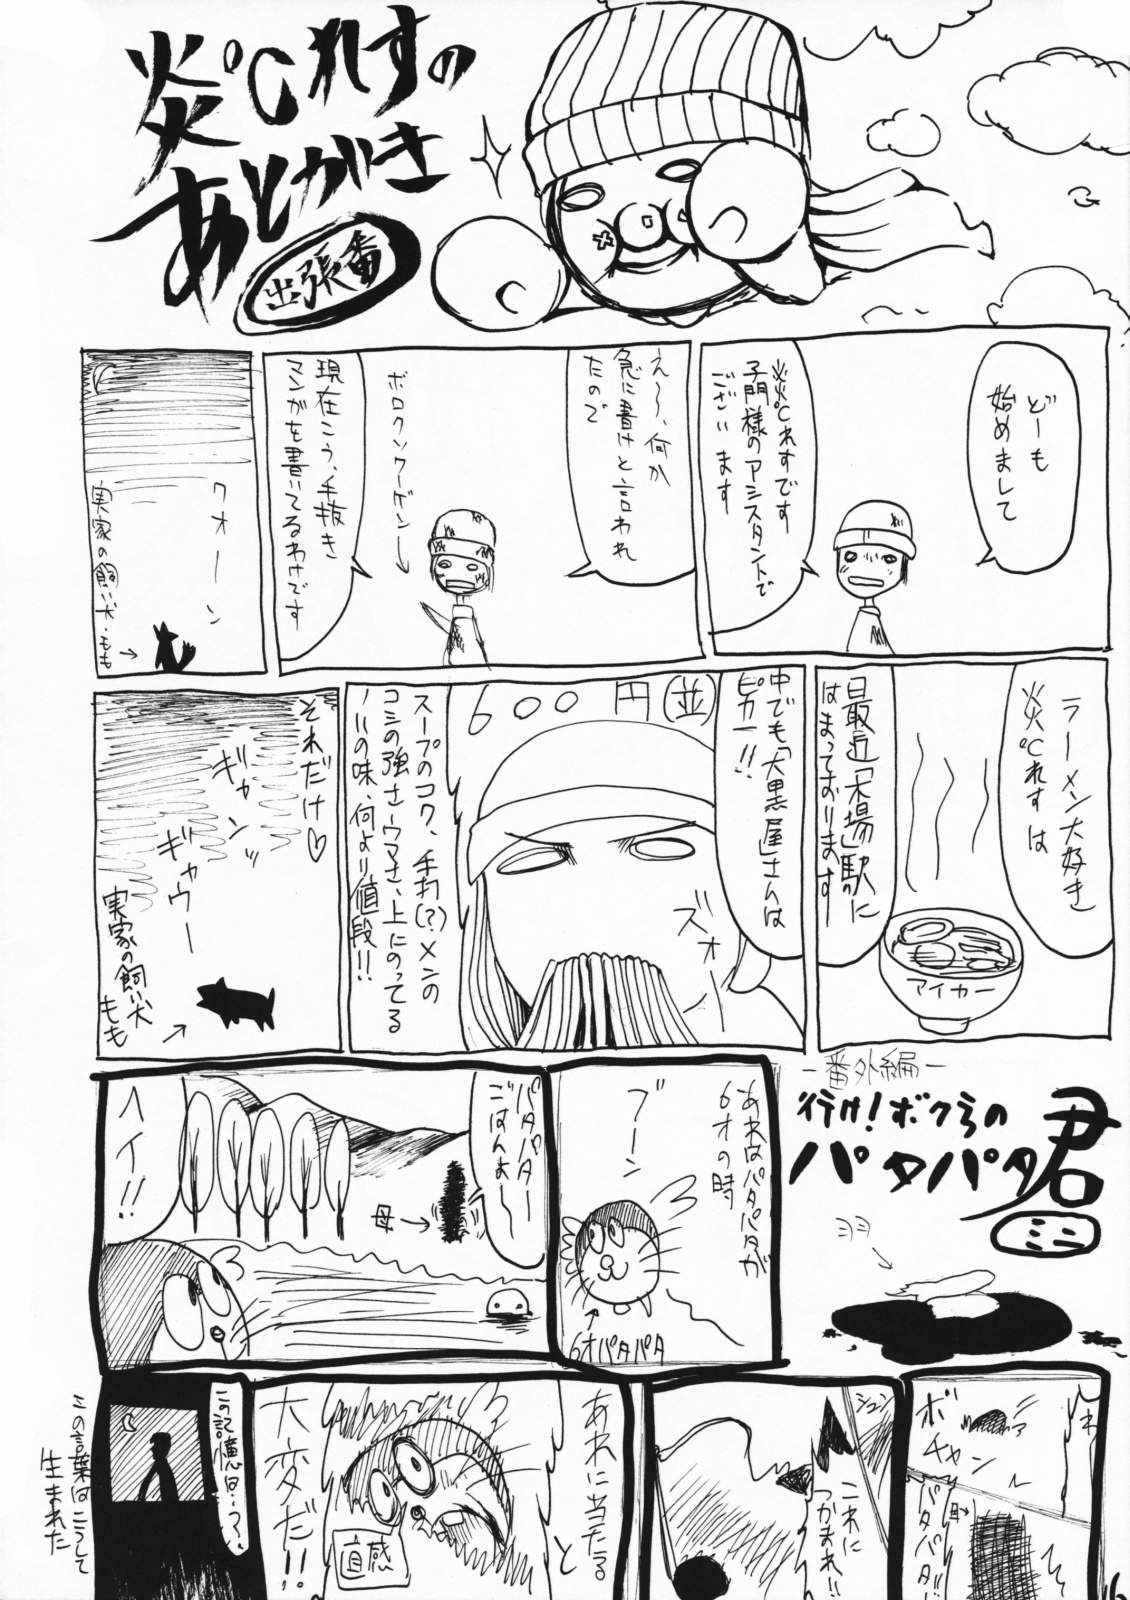 炎℃れすの
あとがき
出張番
どーも
始めまして
炎℃れすです
子門様のアシスタントで
ございます
え〜、何か
急に書けと言われ
たので
ボロクソワーゲン→
現在こう、手抜き
マンガを書いてるわけです
クオーン
実家の飼い犬・もも→
ラーメン大好き
炎℃れすは
最近「大場」駅に
はまっております
アイカー
中でも「大黒屋」さんは
ピカー!!
600円(並)
ズオーー
スープのコク、手打(?)メンの
コシの強さ・ウマさ、上にのってる
ノリの味、何より値段!!
それだけ♡
ギャンッ
ギャウー
実家の飼い犬
もも→
-番外編-
行け!ボクらの
パタパタ君
ミニ
羽
あれはパタパタが
6才の時
ブーン
6才パタパタ
パタパター
ごはんよ〜
母→
ヘイ!!
ボチャン
パタパタ!!
母→
シュッ
これに
つかまれ!!
あれに当たる
と
大変だ!!
直感
この記憶は・・?
この言葉はこうして
生まれた